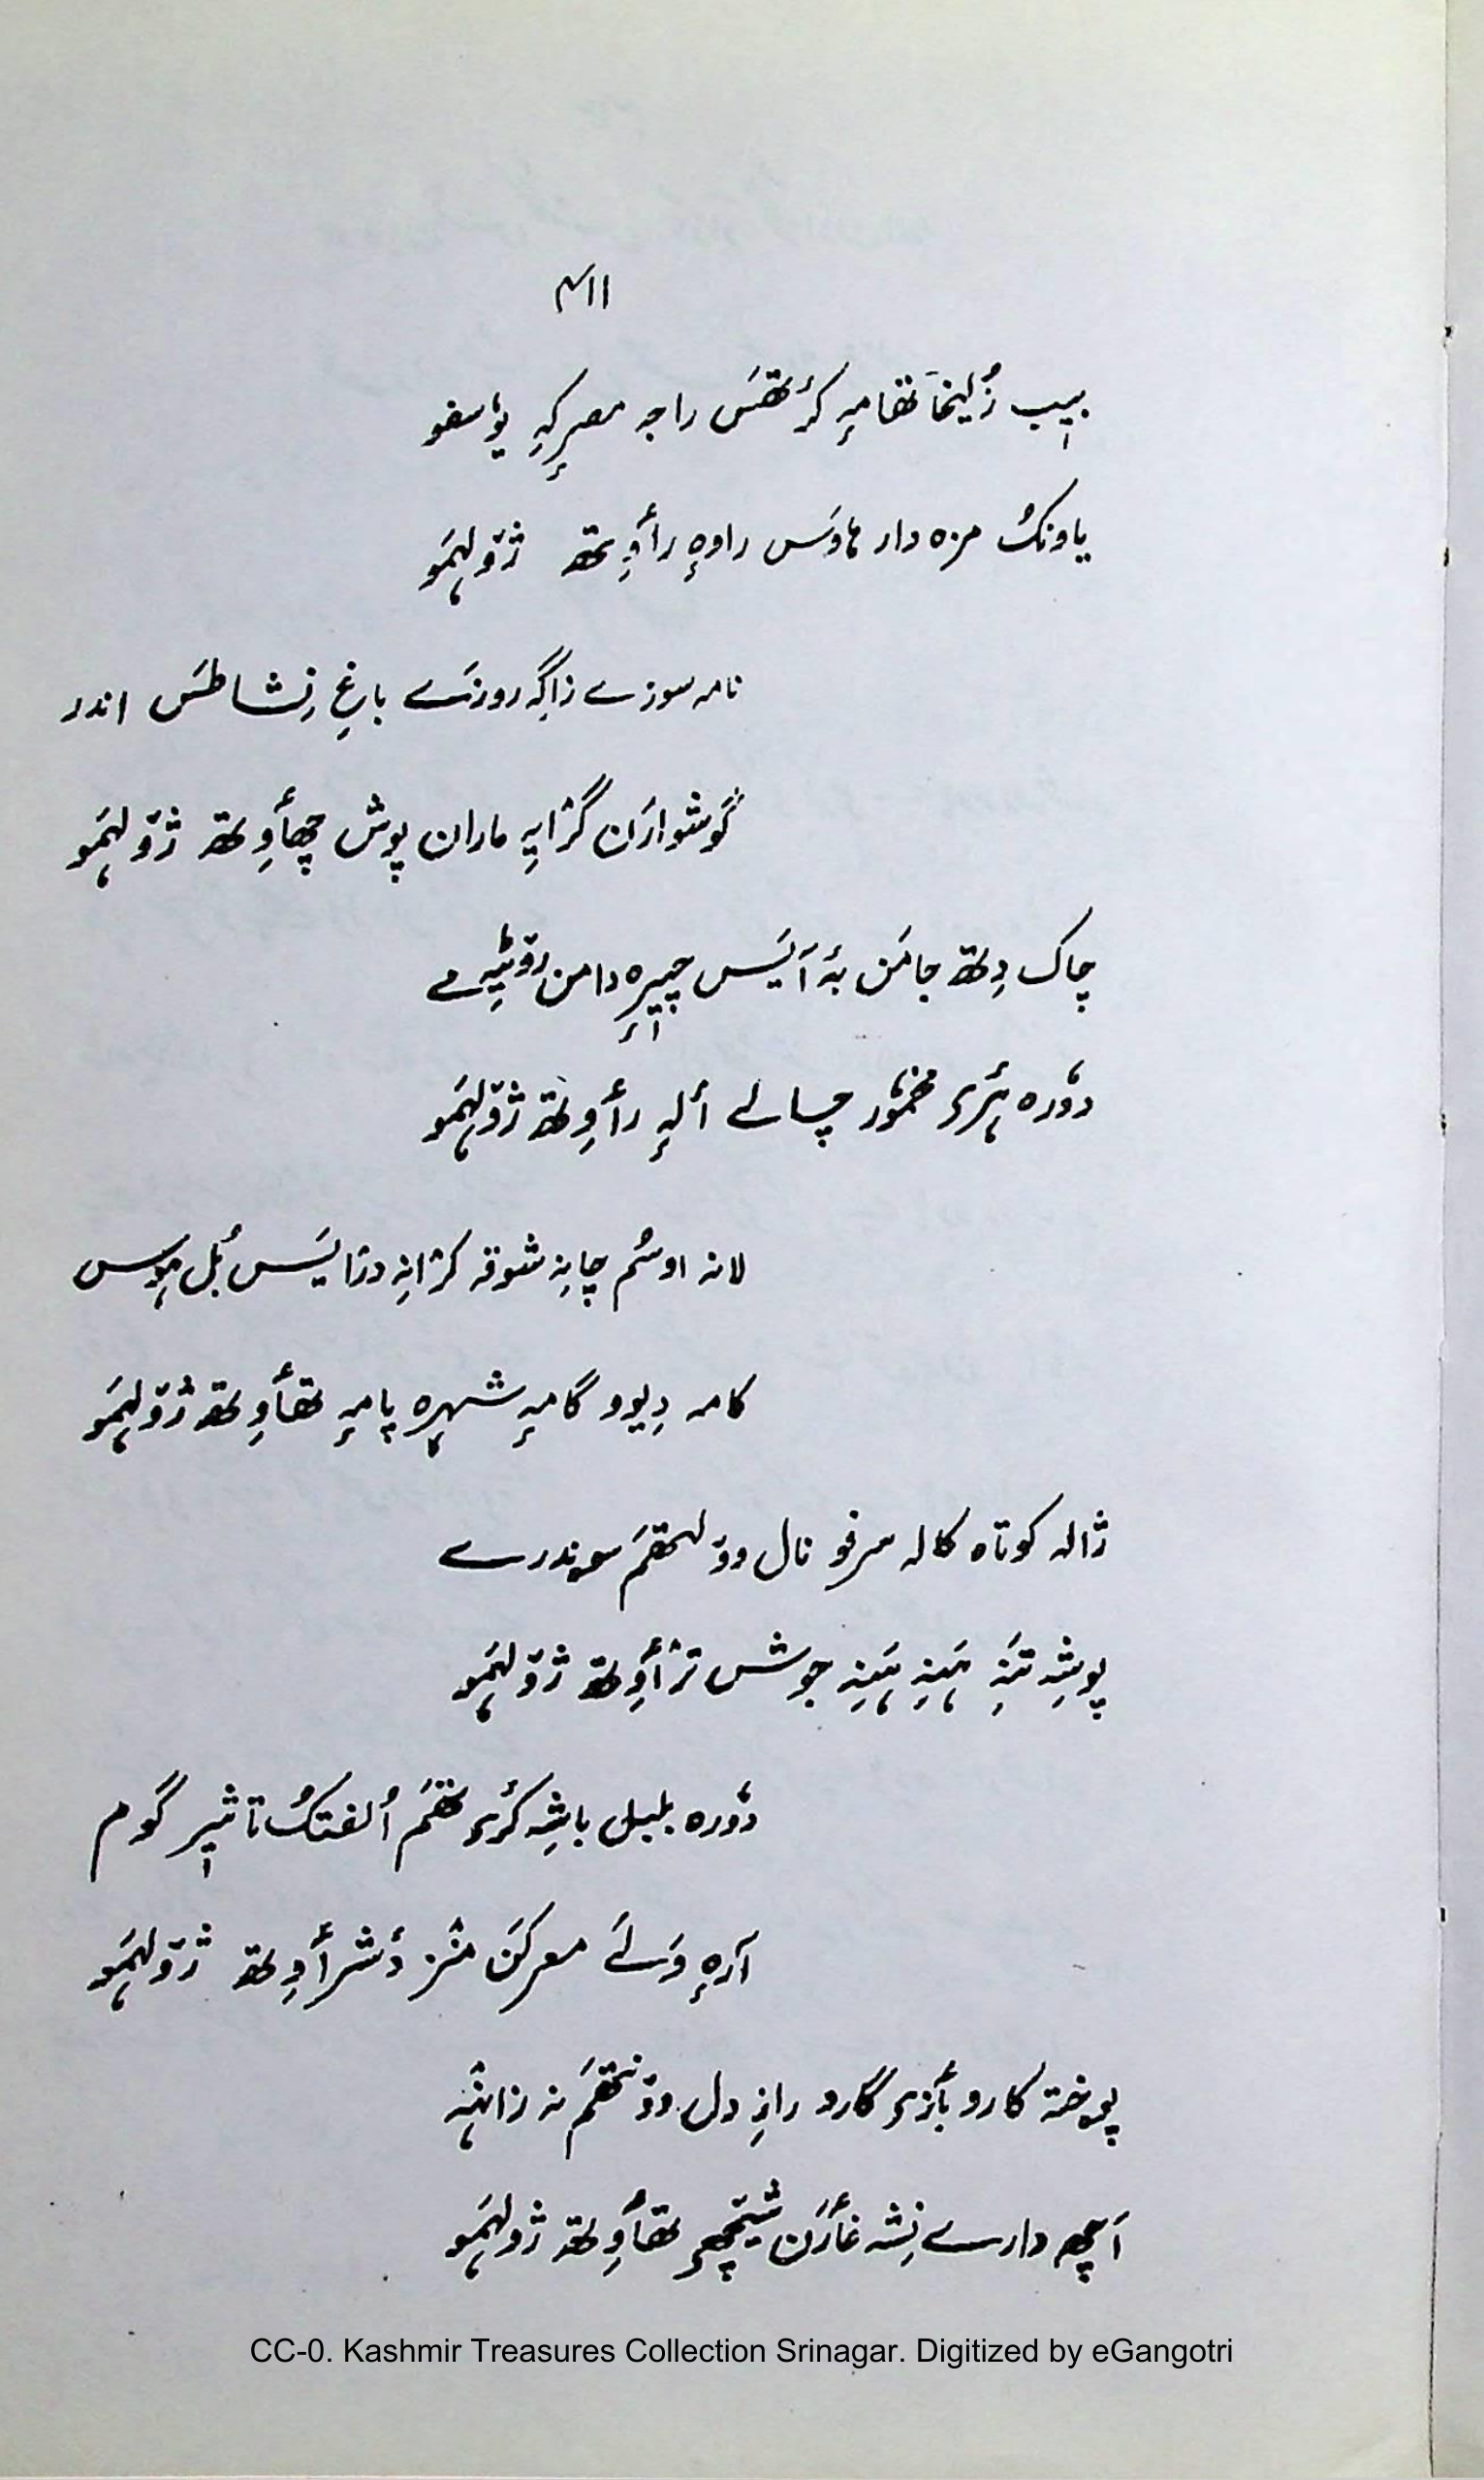 ۴۱۱
بیب زُلیخا تھامہِ کرٔتھس راجہ مصرکہِ یوٗسفو
یاونکُ مزہ دار ہاوَس راوہِ رٲوِتھ ژوٚلہَمو
نامہ سوزے زاگہِ روزے باغِ نِشاطَس اندر
گوشوارَن گرایہِ ماران پوش چھٲوِتھ ژوٚلہَمو
چاک دِتھ جامَن بہٕ آیَس چیرِہ دامن روٚٹیے
دوٗرہ ۂرۍ مخموٗر چسالے ألہِ رٲوِتھ ژوٚلہَمو
لانہ اوسُم چانہِ شوقہ کرانہِ درایَس بُل ہوس
کامہ دِیوو گامہِ شہرہ پامہِ تھٲوِتھ ژوٚلہَمو
ژالہ کوتاہ کالہ سرفو نال ووٚلہتھم سوندرے
پوشِہ تنہِ ہنہِ ہنہِ جوشس ترٲوِتھ ژوٚلہَمو
دوٗرہ بلبل باشہِ کرۍتھم اُلفتکُ تاثیر گوم
آرہِ وَلے معرکَن منٛز دٔشرٲوِتھ ژوٚلہَمو
پوختہ کارو بٲزۍ گارو رازِ دل ووٚنتھم نہ زانٛہہ
اَچھ دارے نِشہ غٲرَن تھٲوِتھ ژولہَمو
CC-0. Kashmir Treasures Collection Srinagar. Digitized by eGangotri